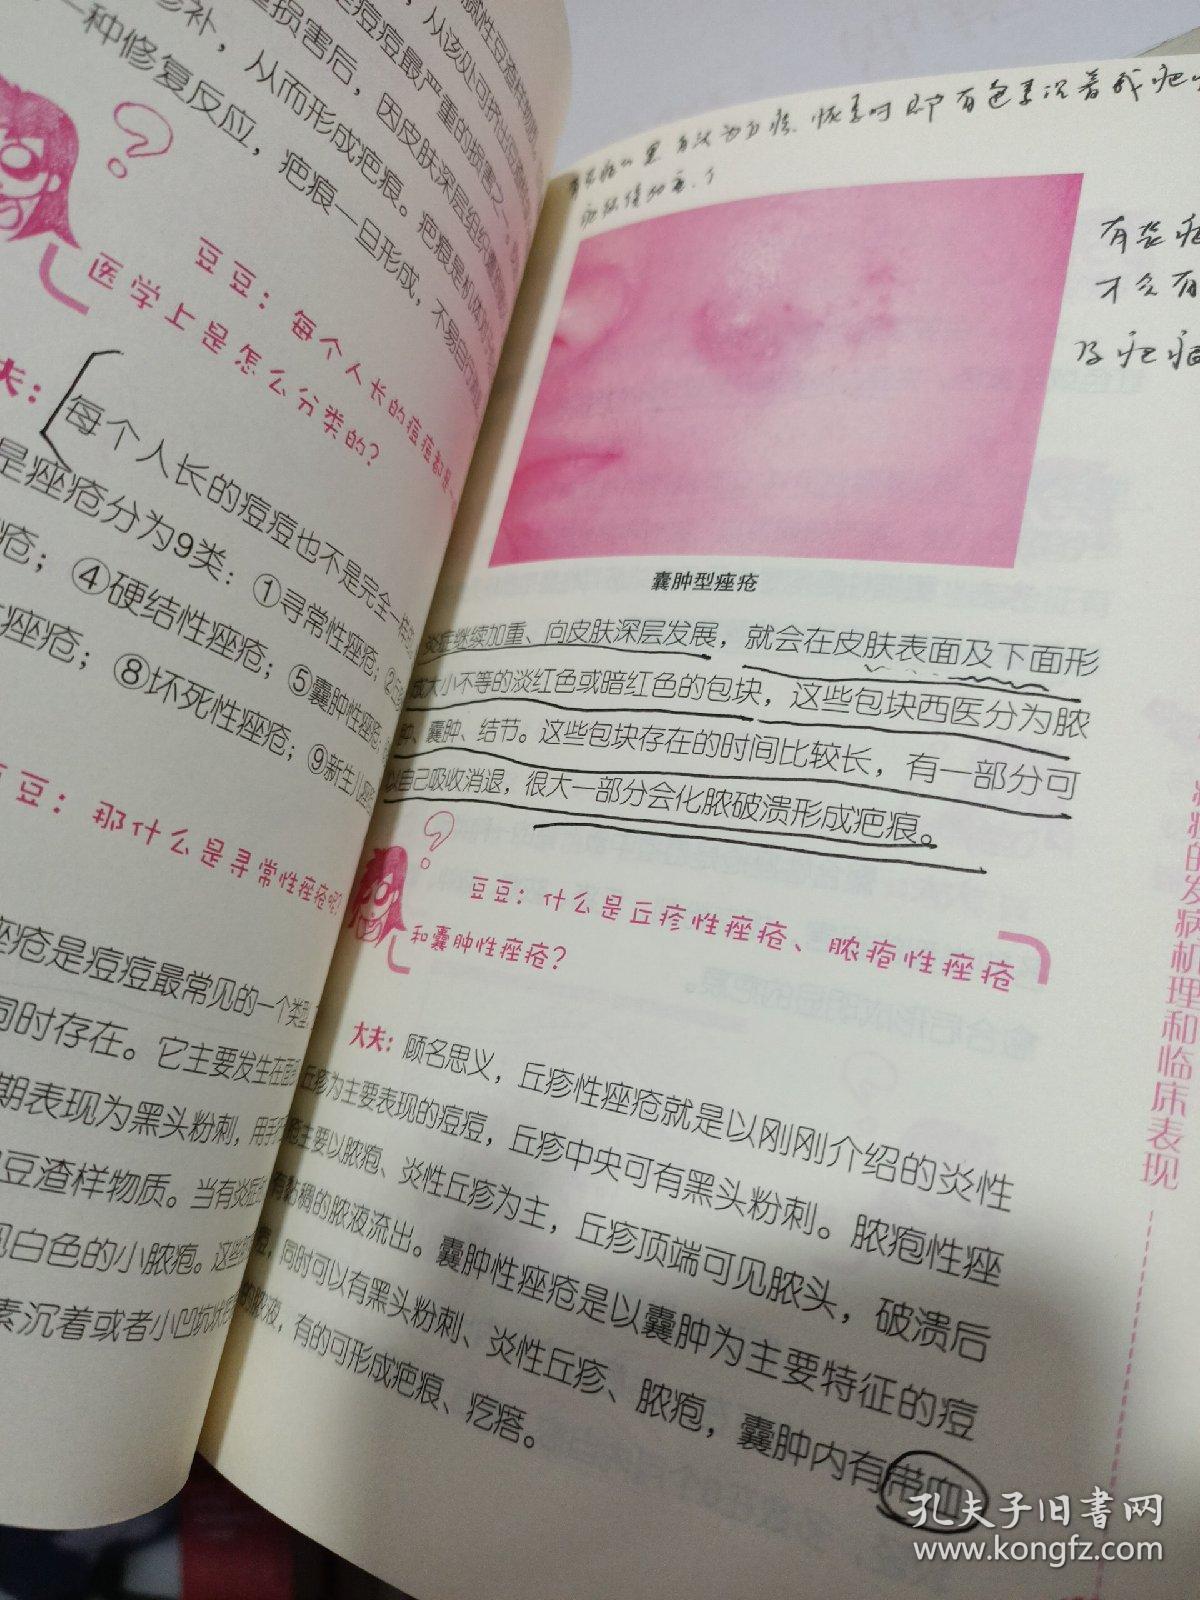 腻性豆渣样物质
从该处可挤出
痘痘最严重的损害？
重损害后，因皮肤深层组织
修补，从而形成疤痕。疤痕是机体
一种修复反应，疤痕一旦形成，不易自行
豆豆：每个人长的痘痘都是
医学上是怎么分类的？
夫：每个人长的痘痘也不是完全一样
是痤疮分为9类：①寻常性痤疮；②
疮；④硬结性痤疮；⑤囊肿性痤疮
痤疮；⑧坏死性痤疮；⑨新生儿
豆：那什么是寻常性痤疮呢？
痤疮是痘痘最常见的一个类型
同时存在。它主要发生在面
期表现为黑头粉刺，用手
豆渣样物质。当有炎症
现白色的小脓疱。这些
素沉着或者小凹坑状
有色素沉着或疤
有
才会有
及疤痕
囊肿型痤疮
炎症继续加重、向皮肤深层发展，就会在皮肤表面及下面形
成大小不等的淡红色或暗红色的包块，这些包块西医分为脓
肿、囊肿、结节。这些包块存在的时间比较长，有一部分可
以自己吸收消退，很大一部分会化脓破溃形成疤痕。
豆豆：什么是丘疹性痤疮、脓疱性痤疮
和囊肿性痤疮？
大夫：顾名思义，丘疹性痤疮就是以刚刚介绍的炎性
丘疹为主要表现的痘痘，丘疹中央可有黑头粉刺。脓疱性痤
疮主要以脓疱、炎性丘疹为主，丘疹顶端可见脓头，破溃后
有黏稠的脓液流出。囊肿性痤疮是以囊肿为主要特征的痘
痘，同时可以有黑头粉刺、炎性丘疹、脓疱，囊肿内有带血
的脓液，有的可形成疤痕、疙瘩。
的发病机理和临床表现
孔夫子旧书网
www.kongfz.com